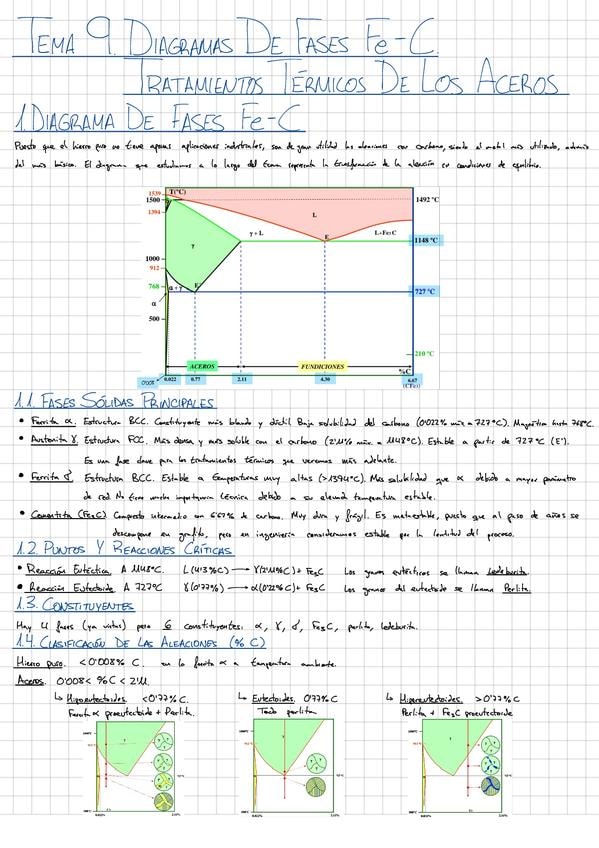 TEMA 9. DIAGRAMAS DE FASES Fe-C.
TRATAMIENTOS TÉRMICOS DE LOS ACEROS
1. DIAGRAMA DE FASES Fe-C
Puesto que el hierro puro no tiene apenas aplicaciones industriales, son de gran utilidad las aleaciones con carbono, siendo el metal más utilizado, además
del más básico. El diagrama que estudiamos a lo largel del tema representa la transformación de la aleación en condiciones de equilibrio.
T(°C)
1539
1500
1394
1492 °C
L
γ + L
L+Fe3C
E
1148 °C
γ
1000
912
768
α + γ
E'
727 °C
α
500
210 °C
ACEROS
FUNDICIONES
%C
0'008 0.022 0.77 2.11 4.30 6.67
(CFe3)
1.1. FASES SÓLIDAS PRINCIPALES
• Ferrita α. Estructura BCC. Constituyente más blando y dúctil. Baja solubilidad del carbono (0'022% máx a 727°C). Magnética hasta 768°C.
• Austenita γ. Estructura FCC. Más densa y más soluble con el carbono (2'11% máx. a 1148°C). Estable a partir de 727°C (E').
Es una fase clave para los tratamientos térmicos que veremos más adelante.
• Ferrita δ. Estructura BCC. Estable a temperaturas muy altas (>1394°C). Más solubilidad que α debido a mayor parámetro
de red. No tiene mucha importancia técnica debido a su elevada temperatura estable.
• Cementita (Fe3C). Compuesto intermedio con 6'67% de carbono. Muy dura y frágil. Es metaestable, puesto que al paso de años se
descompone en grafito, pero en ingeniería consideramos estable por la lentitud del proceso.
1.2. PUNTOS Y REACCIONES CRÍTICAS
• Reacción Eutéctica. A 1148°C. L(4'3%C) → γ(2'11%C) + Fe3C Los granos eutécticos se llaman ledeburita.
• Reacción Eutectoide. A 727°C γ(0'77%C) → α(0'22%C) + Fe3C Los granos del eutectoide se llaman Perlita.
1.3. CONSTITUYENTES
Hay 4 fases (ya vistas) pero 6 constituyentes: α, γ, δ, Fe3C, perlita, ledeburita.
1.4. CLASIFICACIÓN DE LAS ALEACIONES (% C)
Hierro puro. <0'008% C. en la ferrita α a temperatura ambiente.
Aceros. 0'008< %C < 2'11.
↳ Hipoeutectoides. <0'77% C.
Ferrita α proeutectoide + Perlita.
↳ Eutectoides. 0'77% C
Todo perlita
↳ Hipereutectoides. >0'77% C
Perlita + Fe3C proeutectoide